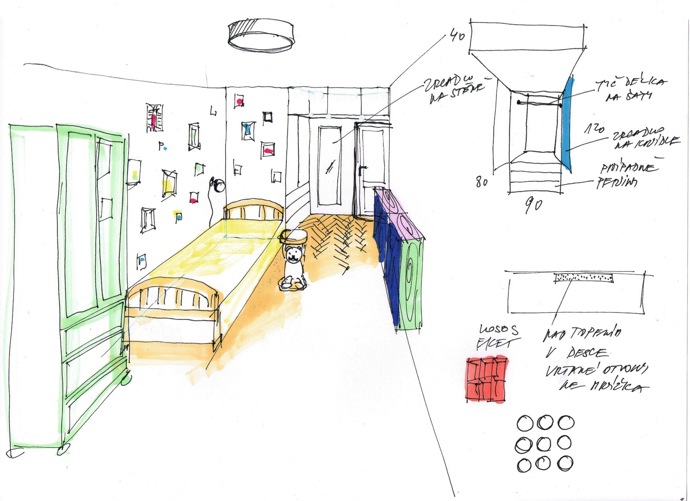 40
ZRCADLO
NA STĚNĚ
TYČ DÉLKA
NA ŠATY
120
ZRCADLO
NA KŘÍDLE
PŘÍPADNĚ
80
90
LOSOS
EKET
NAD TOPENÍM
V DESCE
VRTANÉ OTVORY
NE MŘÍŽKA